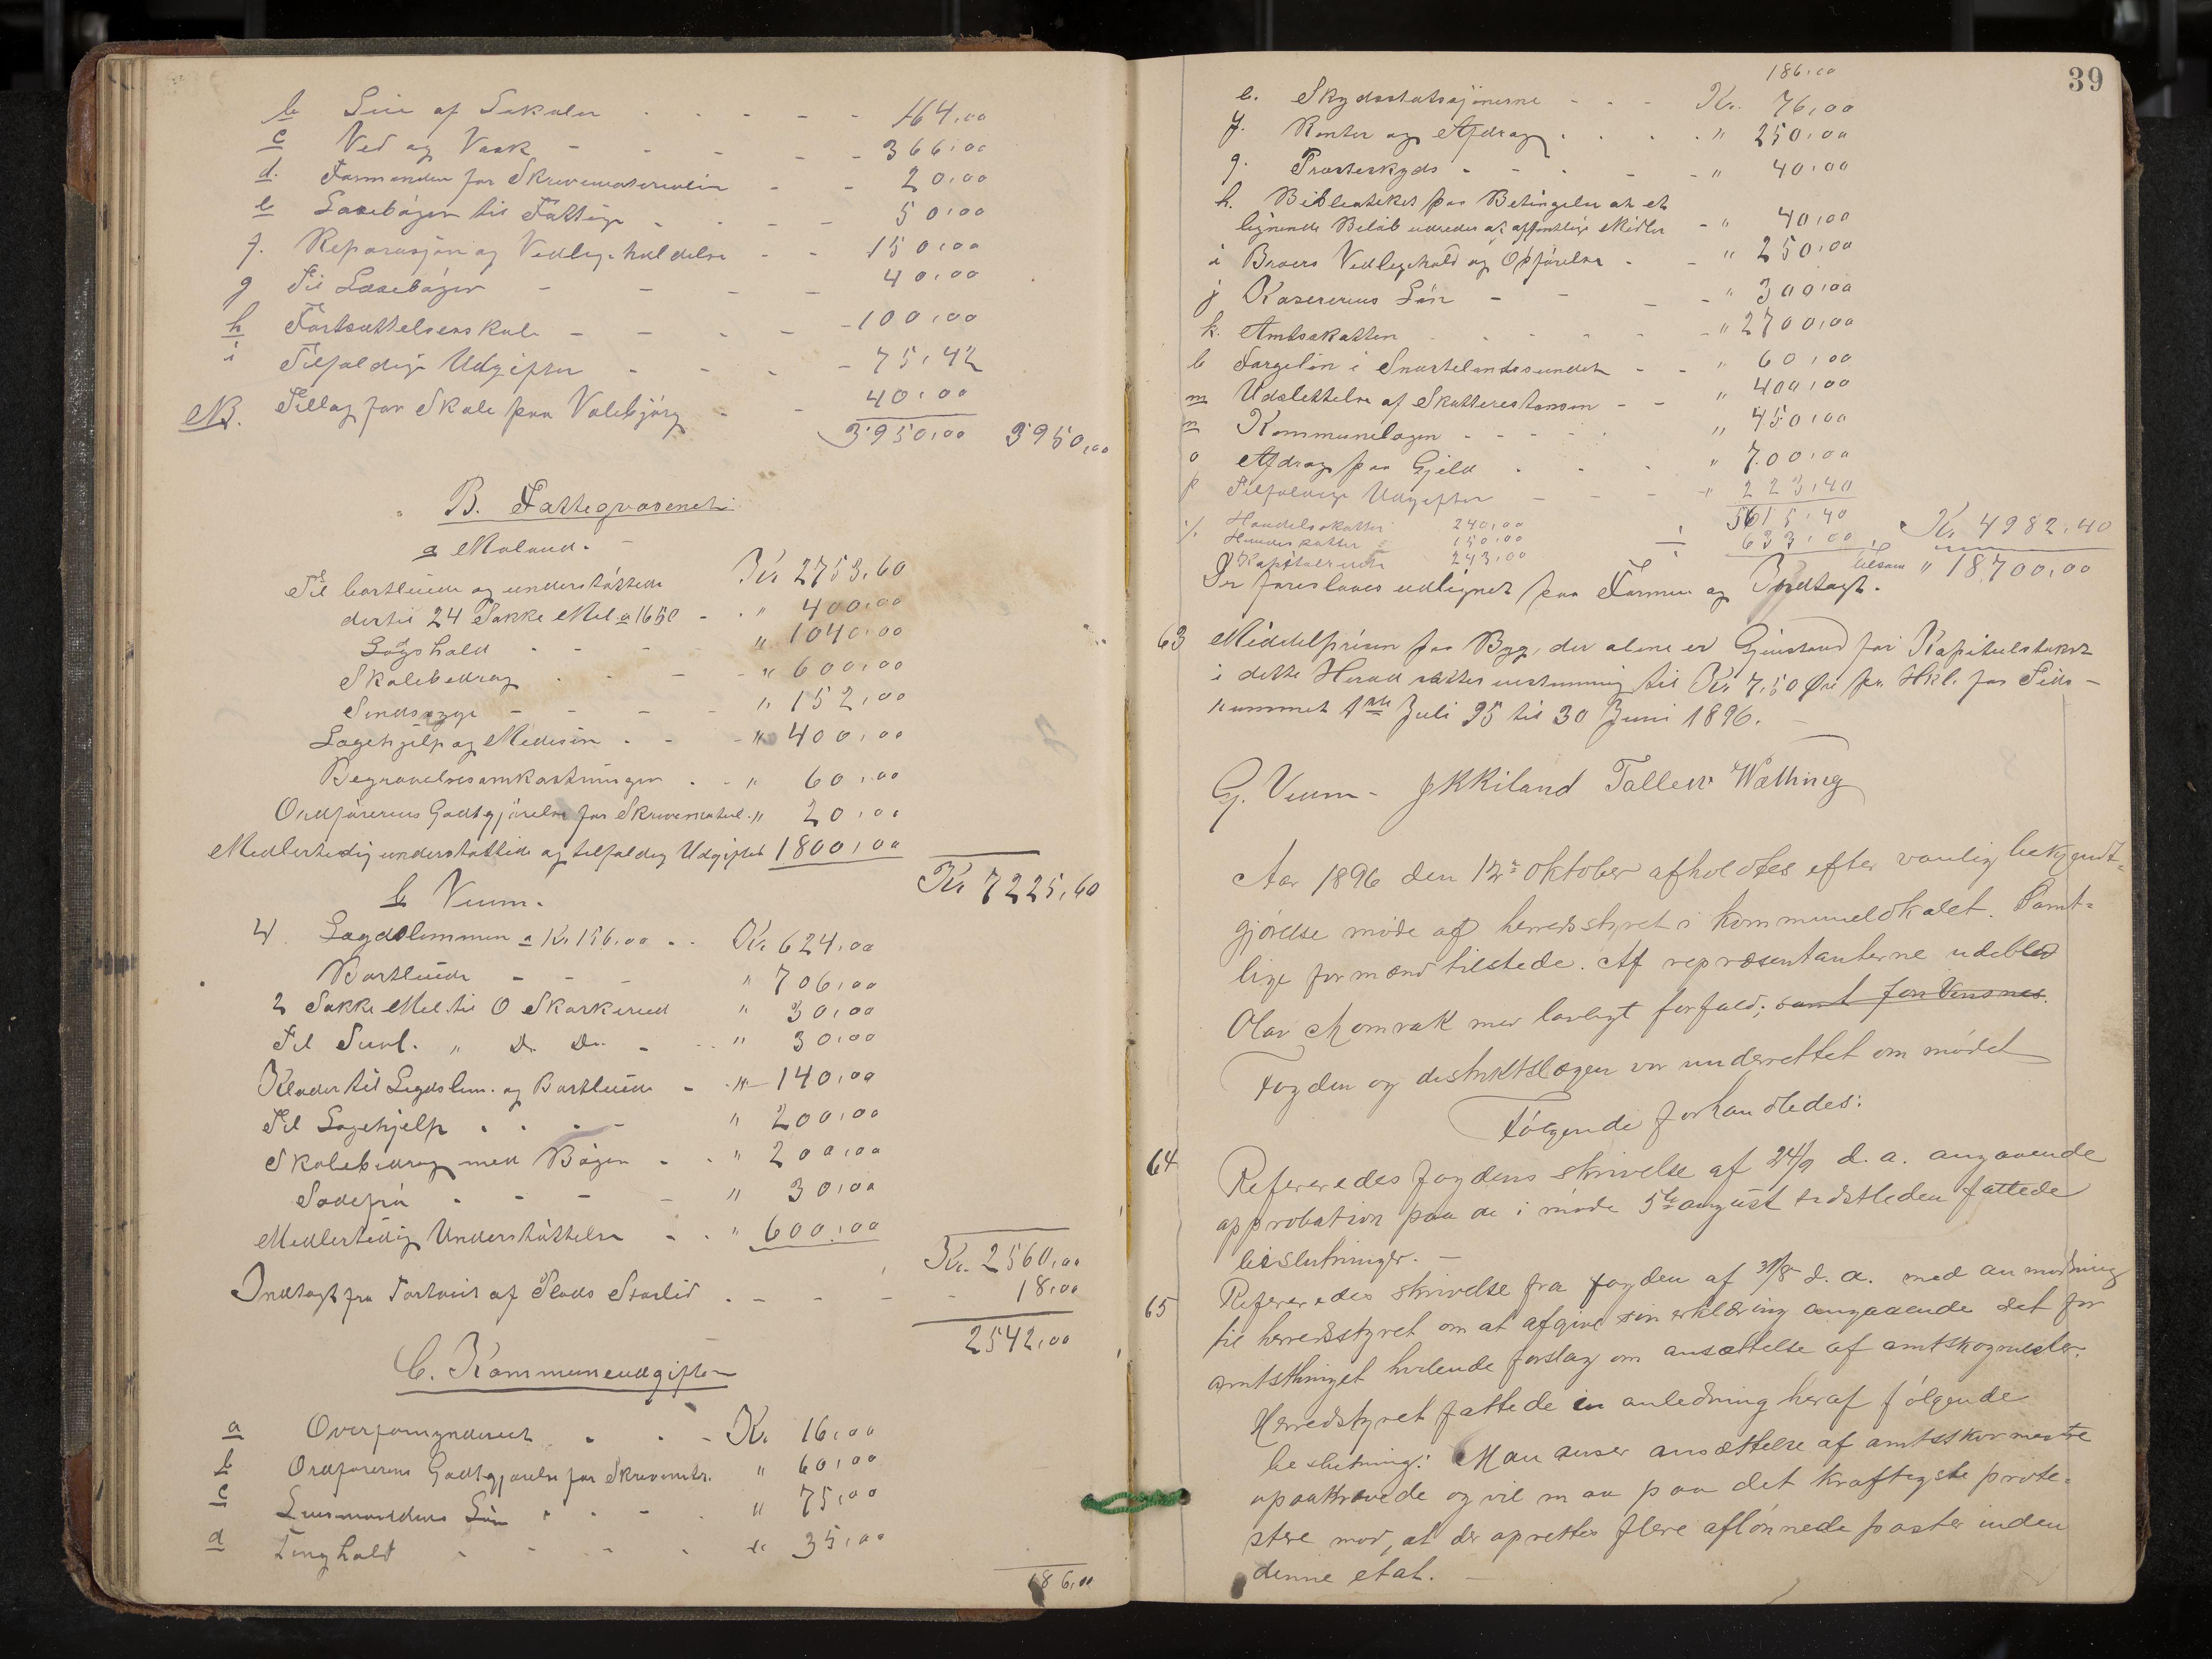 b Leie af Lokaler - - - - - 164,00
c Ved og Vask - - - - - 366,00
d. Formanden for Skrivematerialier - - 20,00
e Læsebøger til Fattige - - - - 50,00
f. Reparasjon og Vedligeholdelse - - 150,00
g Til Læsebøger - - - - 40,00
h Fortsættelsesskole - - - - 100,00
i Tilfældige Udgifter - - - - 75,42
NB. Tillæg for Skole paa Valebjörg - - 40,00
3950,00 3950,00
B. Fattigvæsenet
a Moland.
Til bortleiede og understøttede Kr 2753,60
dertil 24 Sække Mel a 1650 - " 400,00
Lægshold - - - " 1040,00
Skolebedrag - - - " 600,00
Sindssyge - - - - " 152,00
Lægehjelp og Medisin - - " 400,00
Begravelsesomkostninger - - " 60,00
Ordførerens Godtgjørelse for Skrivemateriel. " 20,00
Medlertidig understøttede og tilfeldig Udgifter 1800,00
Kr 7225,60
b Veum.
4 Lægdslemmer a Kr. 156,00 - - Kr 624,00
Bortleiede - - - " 706,00
2 Sække Mel til O Skarkerud " 30,00
Til Suvl. " Do. Do. - - " 30,00
Klæder til Legdslem. og Bortleiede - " 140,00
Til Lægehjelp - - - - " 200,00
Skolebedrag med Bøger - - " 200,00
Sædefrø - - - - " 30,00
Medlertidig Understøttelse - - " 600,00
Kr. 2560,00
Indtægt fra Tortveit af Slads Storlid - - - - 18,00
2542,00
C. Kommuneudgifter
a Overformynderiet - - - Kr. 16,00
b Ordførerens Godtgjørelse for Skrivemtr. " 60,00
c Lensmandens Løn - - - " 75,00
d Tinghold - - - - " 35,00
186,00
39
186,00
e. Skydsstatsjonerne - - - Kr. 76,00
f. Renter og Afdrag - - - - " 250,00
g. Prosteskyds - - - - - " 40,00
h. Biblioteket paa Betingelse at et
lignende Beløb udredes af offentlige Midler - " 40,00
i Broers Vedligehold og Opførelse - - " 250,00
j Kasererens Løn - - - - " 300,00
k. Amtsskatten - - - - - " 2700,00
l Færgeløn i Snartelandssundet - - " 60,00
m Udslettelse af Skatterestanser - - " 400,00
n Kommunelægen - - - - " 450,00
o Afdrag paa Gjeld - - - " 700,00
p Tilfældige Udgifter - - - - " 223,40
5615,40
÷ Handelsskatter 240,00
Hundeskatter 150,00
Kapitalrente 243,00
÷ 633,00 Kr 4982,40
tilsam " 18700,00
Der foreslaaes udlignet paa Formue og Indtægt.
63 Middelprisen paa Byg, der alene er Gjenstand for Kapitelstakst
i dette Herred sættes enstemmig til Kr 7,50 Øre pr. Hkl. for Tids-
rummet 1ste Juli 95 til 30 Juni 1896.
G. Veum - JKKiland Tallew Wæthing
Aar 1896 den 12te Oktober afholdtes efter vanlig bekjendt-
gjørelse møde af herredsstyret i kommunelokalet. Samt-
lige formænd tilstede. Af repræsentanterne udeblev
Olav Momrak med lovligt forfald; samt Jon Vensnes.
Fogden og distriktslægen var underrettet om mødet
Følgende forhandledes:
64 Refereredes fogdens skrivelse af 24/9 d. a. angaaende
approbation paa de i møde 5te august sidstleden fattede
beslutninger. -
65 Refereredes skrivelse fra fogden af 31/8 d. a. med anmodning
til herredsstyret om at afgive sin erklæring angaaende det for
amtsthinget hvilende forslag om ansættelse af amtskogmester.
Herredstyret fattede in anledning heraf følgende
beslutning: Man anser ansættelse af amtsskovmestre
upaakrævede og vil man paa det kraftigste prote-
stere mod, at der oprettes flere aflønnede poster inden
denne etat. -